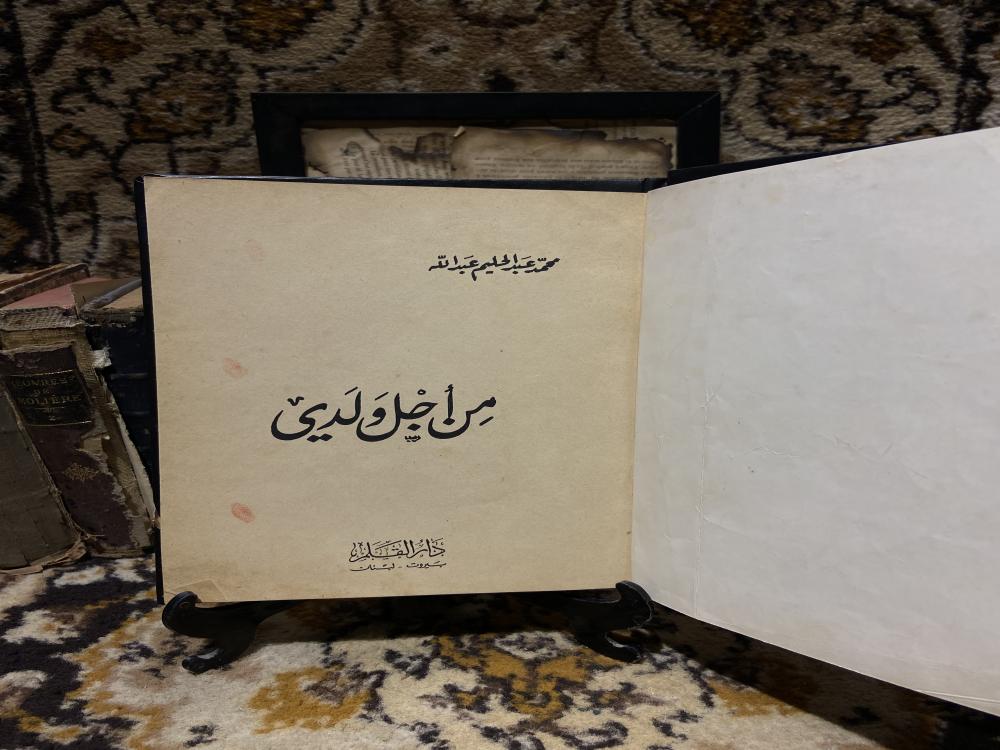 محمّد عبد الحليم عبد الله
مِن أجْل وَلَدي
دَار القَلم
بيروت - لبنان
ŒUVRES
DE
MOLIÈRE